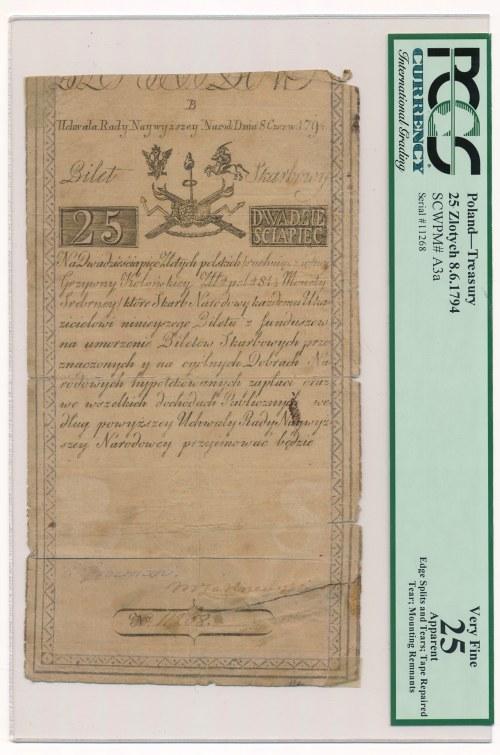 B
Uchwała Rady Naywyższey Narod: Dnia 8 Czerw: 179
Bilet Skarbowy
25
DWADZIE
ŚCIAPIĘĆ
Na Dwadzieściapięć Złotych polskich
Grzywny Kolońskiey Monety
Srebrney / które Skarb Narodowy każdemu Uka
zicielowi ninieyszego Biletu z funduszow
na umorzenie Biletow Skarbowych prze
znaczonych y na ogólnych Dobrach Na
rodowych hypotekowanych zapłaci oraz
we wszelkich dochodach Publicznych we
dług powyższey Uchwały Rady Naywyż
szey Narodowey przyimować będzie
No 11268
PCGS
CURRENCY
International Grading
Poland—Treasury
25 Zlotych 8.6.1794
SCWPM# A3a
Serial #11268
Very Fine
25
Apparent
Edge Splits and Tears; Tape Repaired
Tear; Mounting Remnants